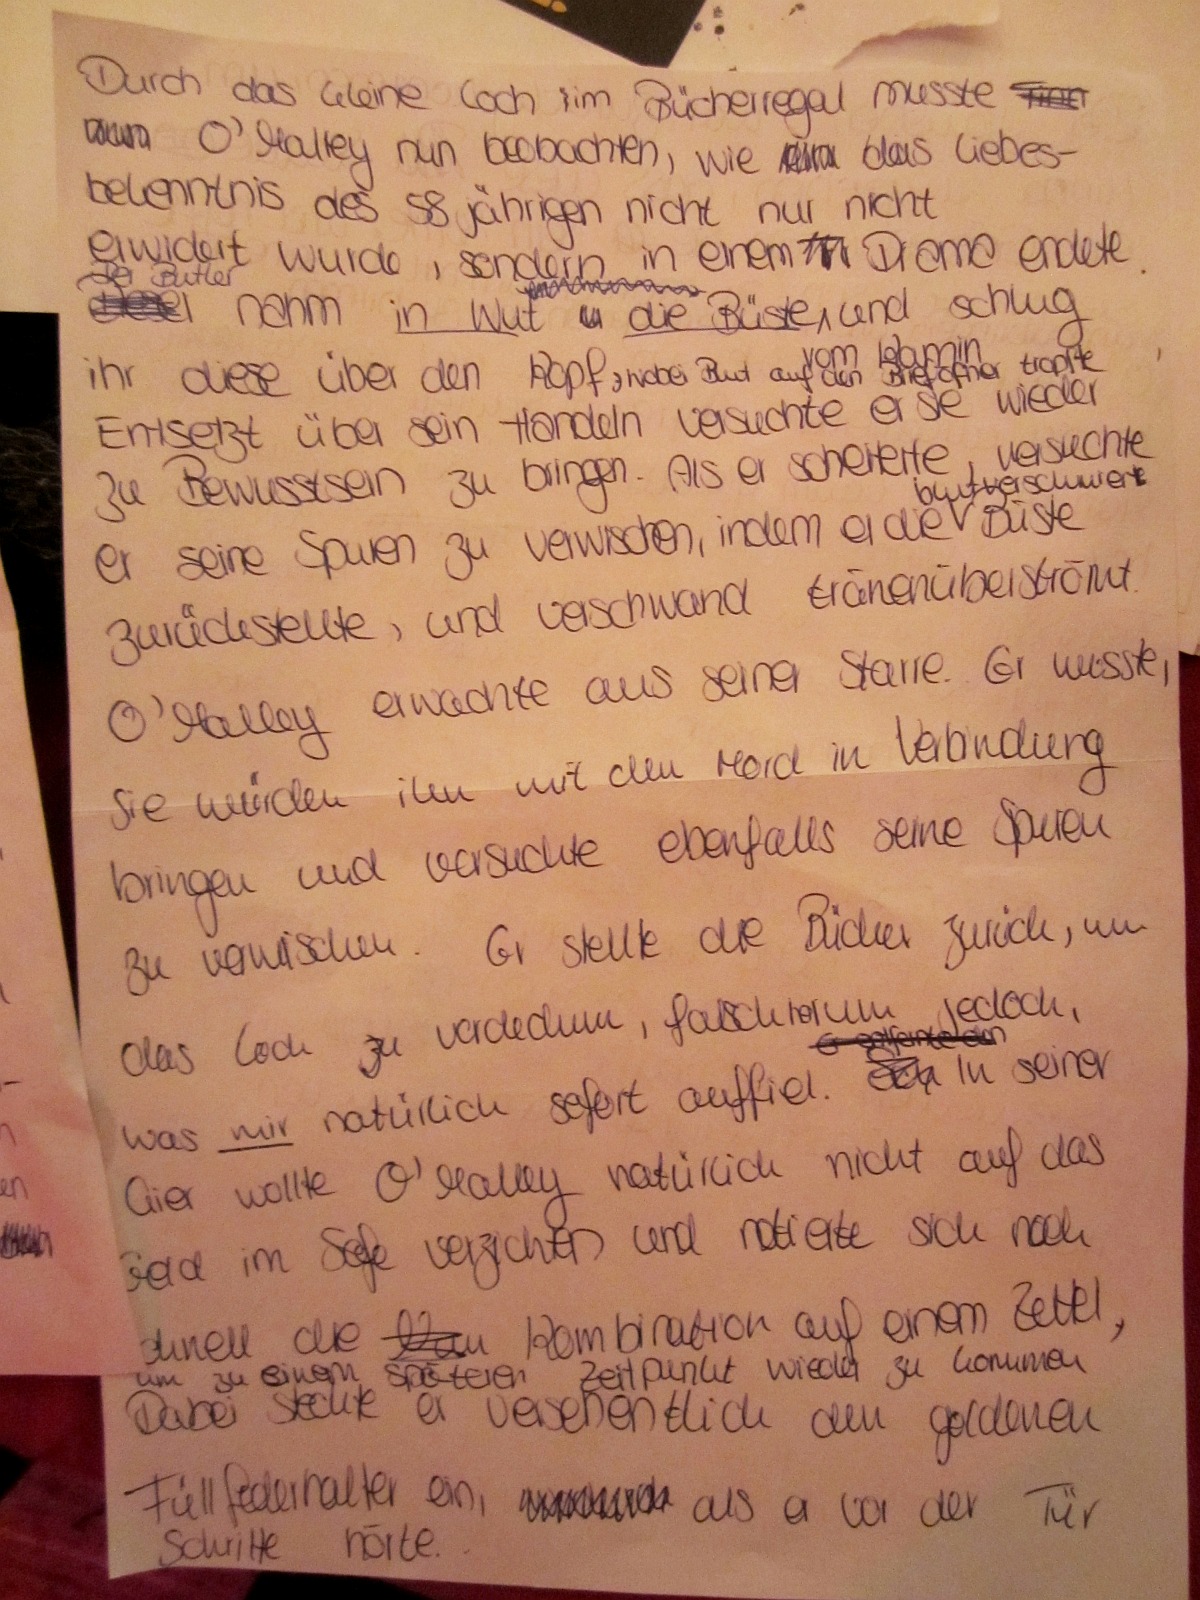 Durch das kleine Loch im Bücherregal musste
O'Malley nun beobachten, wie das Liebes-
bekenntnis des 58 jährigen nicht nur nicht
erwidert wurde, sondern in einem Drama endete.
Der Butler
nahm in Wut die Büste, und schlug
vom Kamin
ihr diese über den Kopf, wobei Blut auf den Brieföffner tropfte
Entsetzt über sein Handeln versuchte er sie wieder
zu Bewusstsein zu bringen. Als er scheiterte, versuchte
blutverschmierte
er seine Spuren zu verwischen, indem er die Büste
zurückstellte, und verschwand tränenüberströmt.
O'Malley erwachte aus seiner Starre. Er wusste,
sie würden ihn mit den Mord in Verbindung
bringen und versuchte ebenfalls seine Spuren
zu verwischen. Er stellte die Bücher zurück, um
das Loch zu verdecken, falschrorum jedoch,
was mir natürlich sofort auffiel. In seiner
Gier wollte O'Malley natürlich nicht auf das
Geld im Safe verzichten und notierte sich noch
chnell die Kombination auf einem Zettel,
um zu einem späteren Zeitpunkt wieder zu kommen
Dabei steckte er versehentlich den goldenen
Füllfederhalter ein, als er vor der Tür
Schritte hörte.